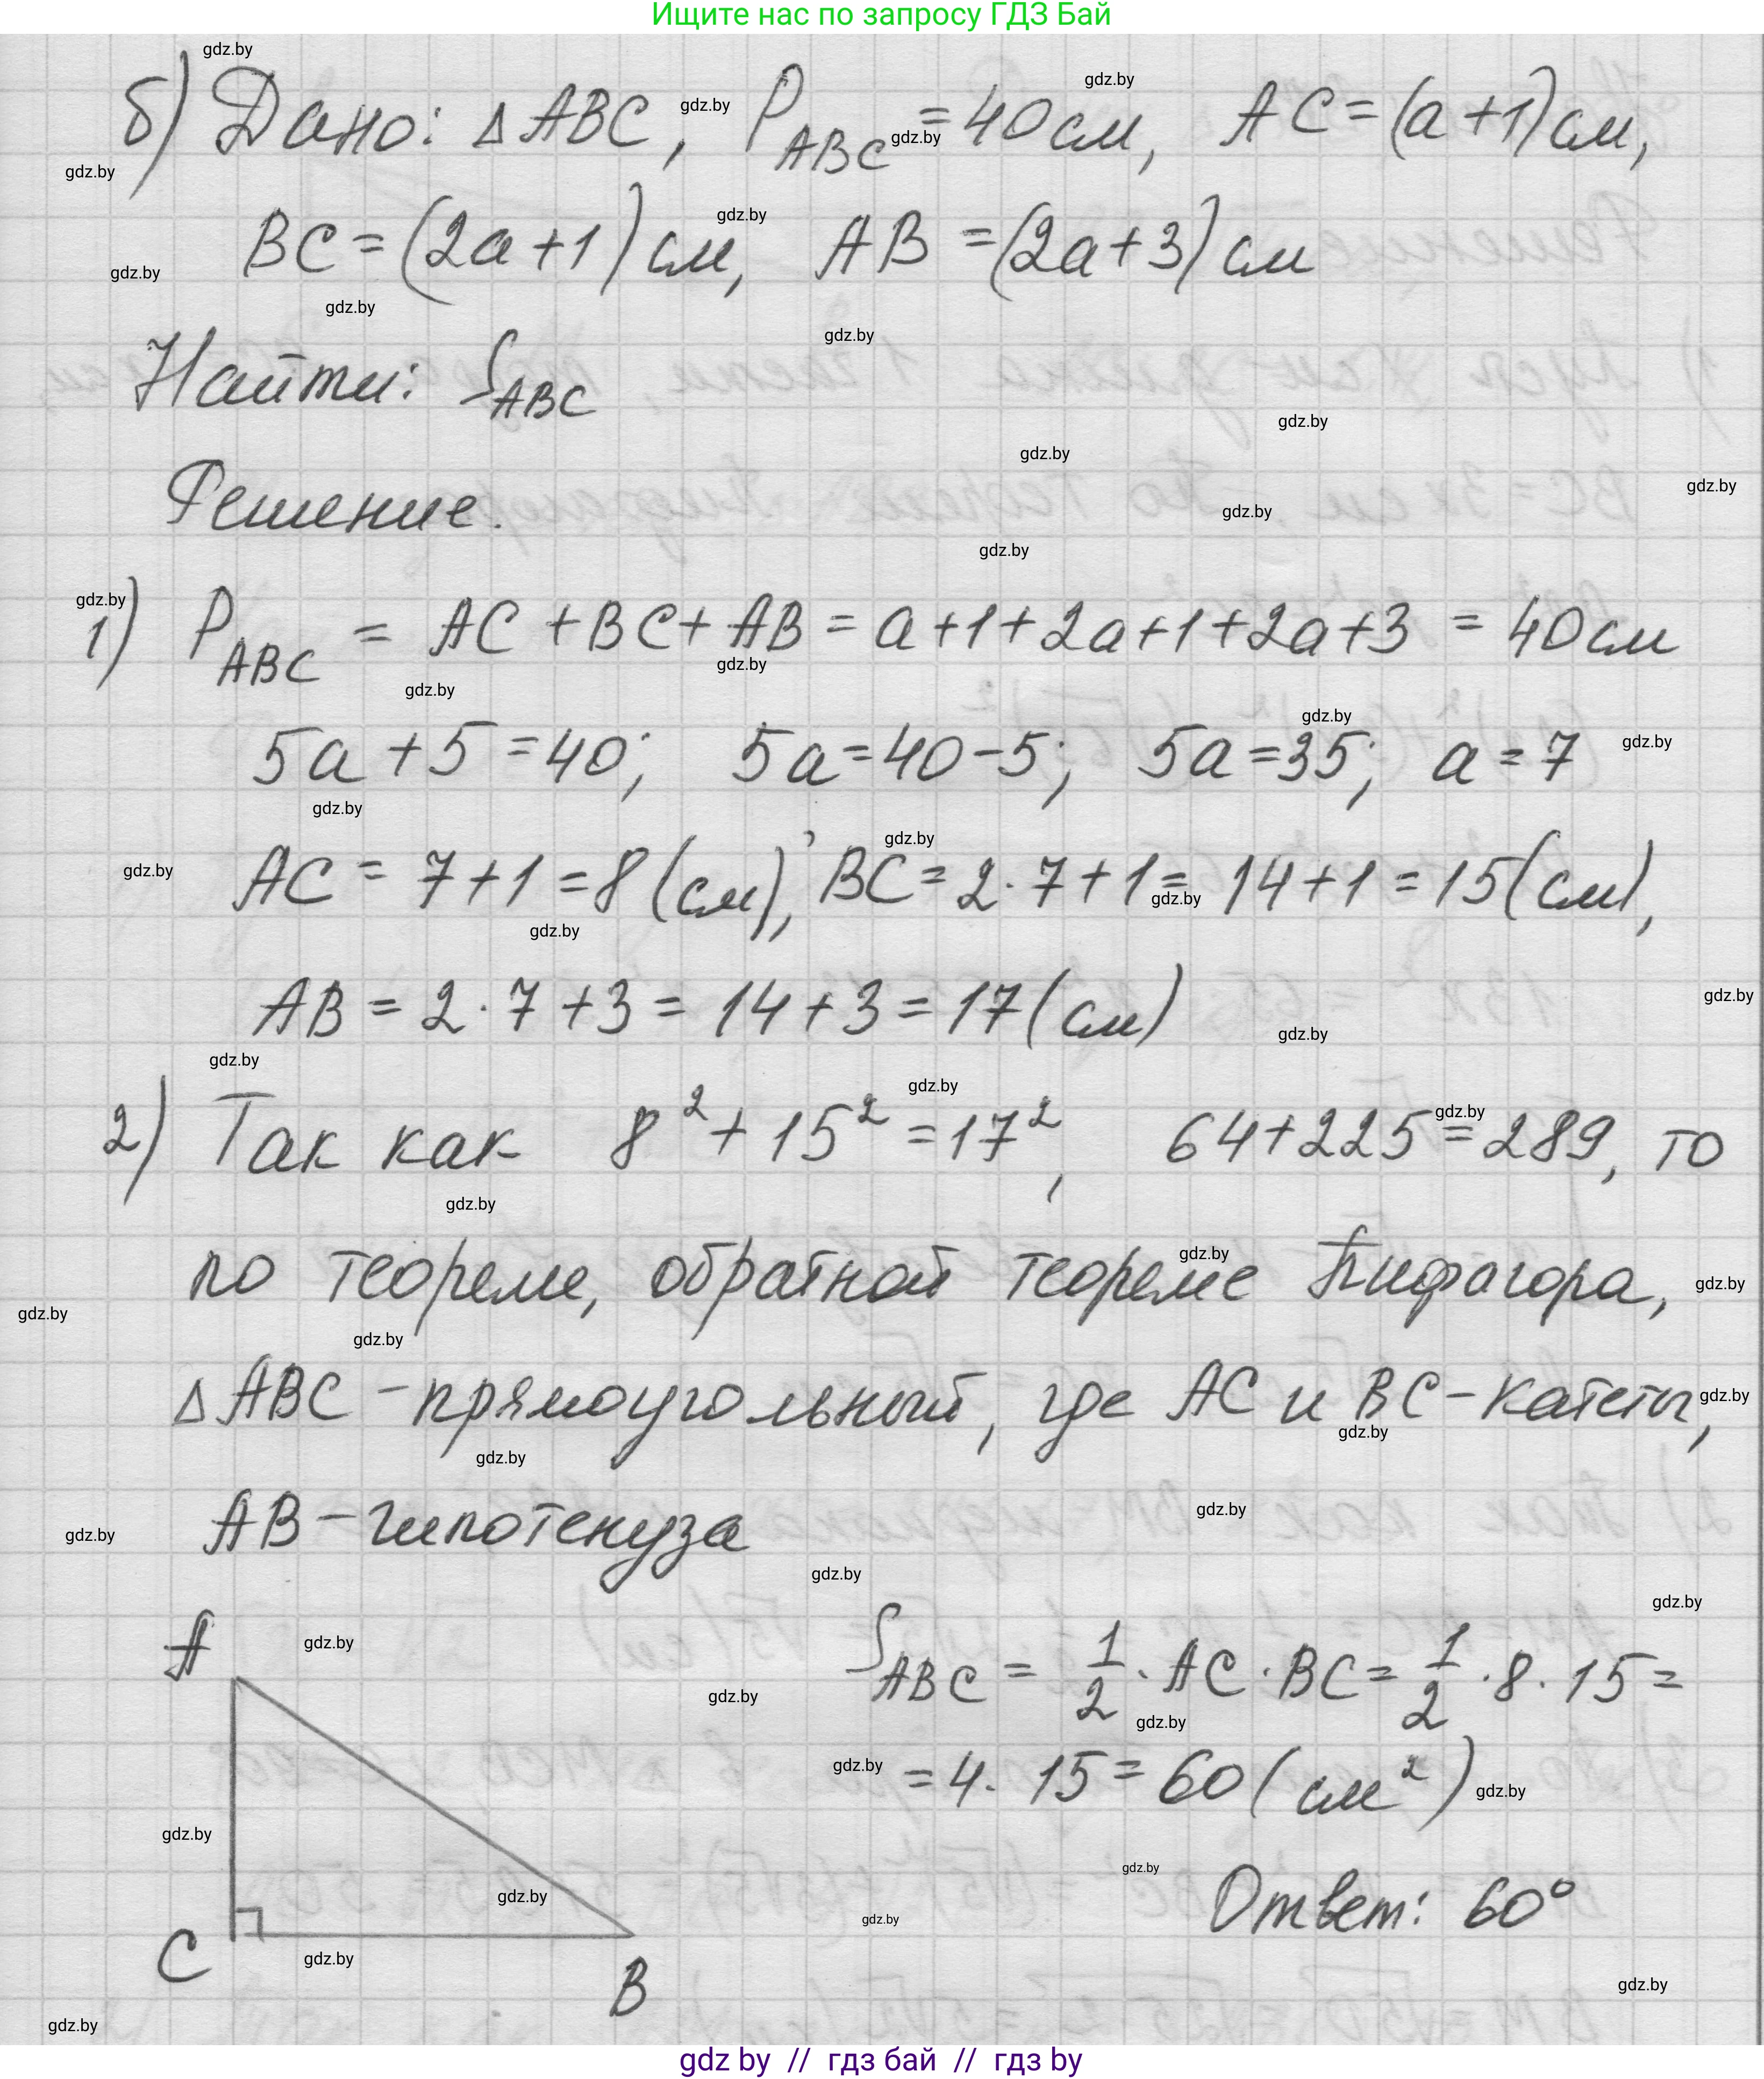 Ищите нас по запросу ГДЗ Бай
б) Дано: △ABC, P_ABC = 40 см, AC = (a+1) см,
BC = (2a+1) см, AB = (2a+3) см
Найти: S_ABC
Решение.
1) P_ABC = AC + BC + AB = a+1+2a+1+2a+3 = 40 см
5a + 5 = 40; 5a = 40 - 5; 5a = 35; a = 7
AC = 7 + 1 = 8 (см), BC = 2 · 7 + 1 = 14 + 1 = 15 (см),
AB = 2 · 7 + 3 = 14 + 3 = 17 (см)
2) Так как 8² + 15² = 17², 64 + 225 = 289, то
по теореме, обратной теореме Пифагора,
△ABC - прямоугольный, где AC и BC - катеты,
AB - гипотенуза
A
S_ABC = 1/2 · AC · BC = 1/2 · 8 · 15 =
= 4 · 15 = 60 (см²)
Ответ: 60°
C
B
gdz by // гдз бай // гдз by